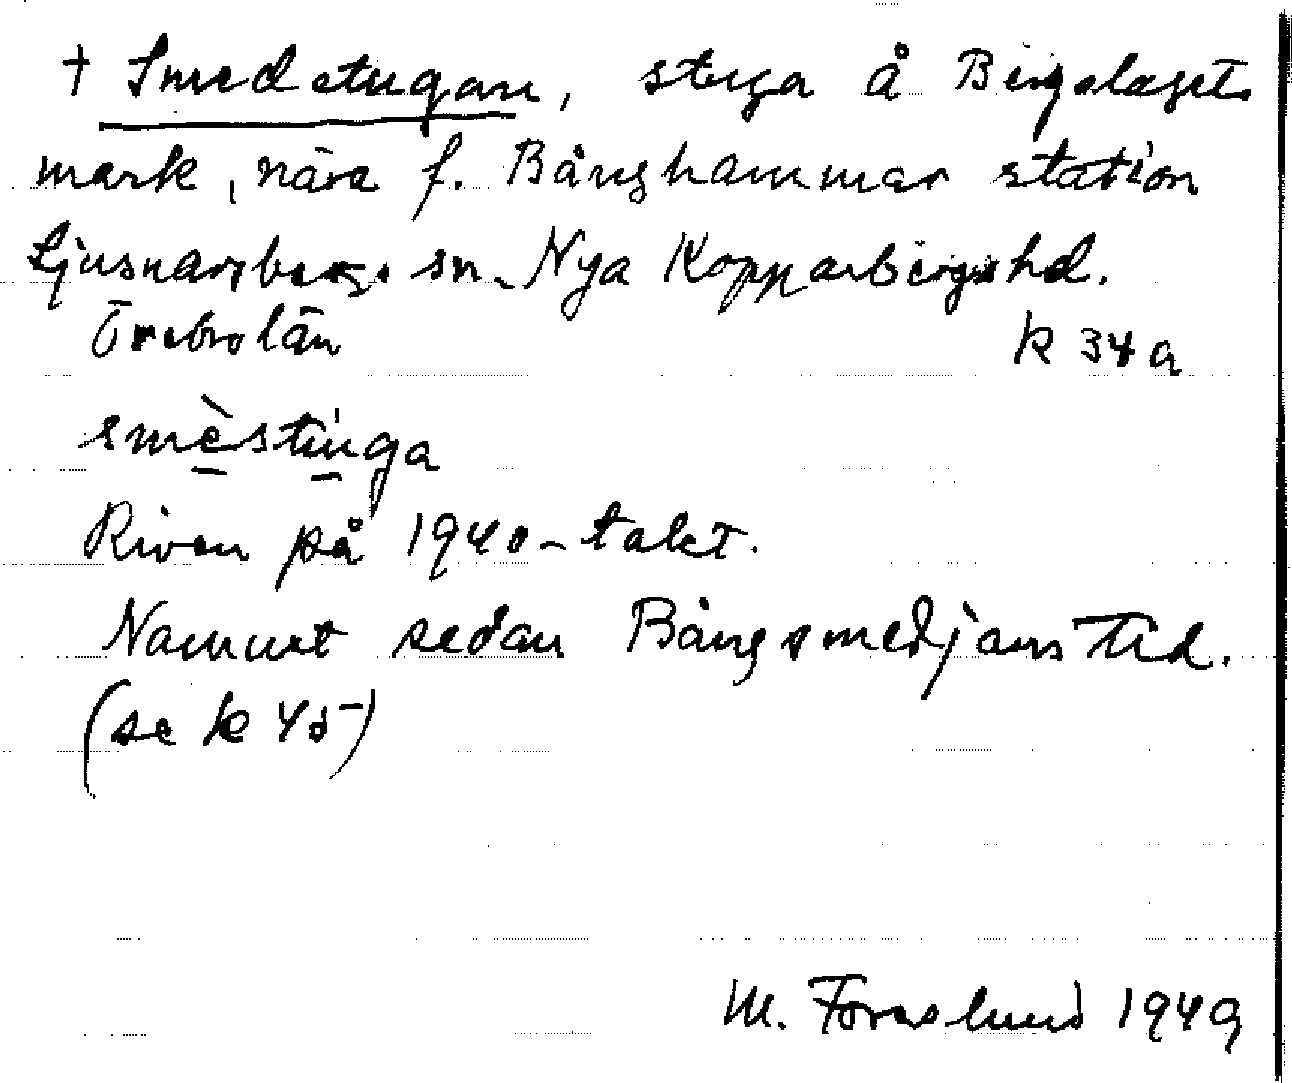 † Smedstugan, stuga å Bergslagets
mark, nära f. Bånghammar station
Ljusnarsbergs sn. Nya Kopparbergs hd.
Örebro län k 34a
smèstúga
Riven på 1940-talet.
Namnet sedan Bångsmedjans tid.
(se k 45)
M. Forslund 1949